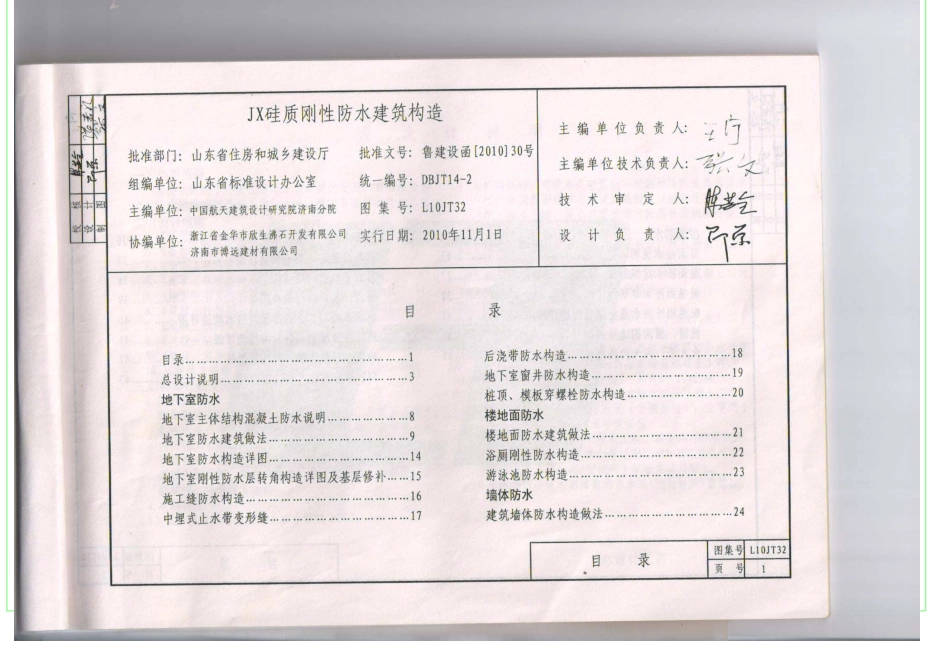 JX硅质刚性防水建筑构造
批准部门: 山东省住房和城乡建设厅 批准文号: 鲁建设函[2010]30号
组编单位: 山东省标准设计办公室 统一编号: DBJT14-2
主编单位: 中国航天建筑设计研究院济南分院 图 集 号: L10JT32
协编单位: 浙江省金华市欣生沸石开发有限公司
济南市博远建材有限公司
实行日期: 2010年11月1日
主编单位负责人:
主编单位技术负责人:
技术审定人:
设计负责人:
校核
设计
制图
目 录
目录……………………………………1
总设计说明……………………………3
地下室防水
地下室主体结构混凝土防水说明……………8
地下室防水建筑做法……………………9
地下室防水构造详图……………………14
地下室刚性防水层转角构造详图及基层修补……15
施工缝防水构造…………………………16
中埋式止水带变形缝……………………17
后浇带防水构造…………………………18
地下室窗井防水构造……………………19
桩顶、模板穿螺栓防水构造………………20
楼地面防水
楼地面防水建筑做法……………………21
浴厕刚性防水构造………………………22
游泳池防水构造…………………………23
墙体防水
建筑墙体防水构造做法…………………24
目 录
图集号 L10JT32
页 号 1